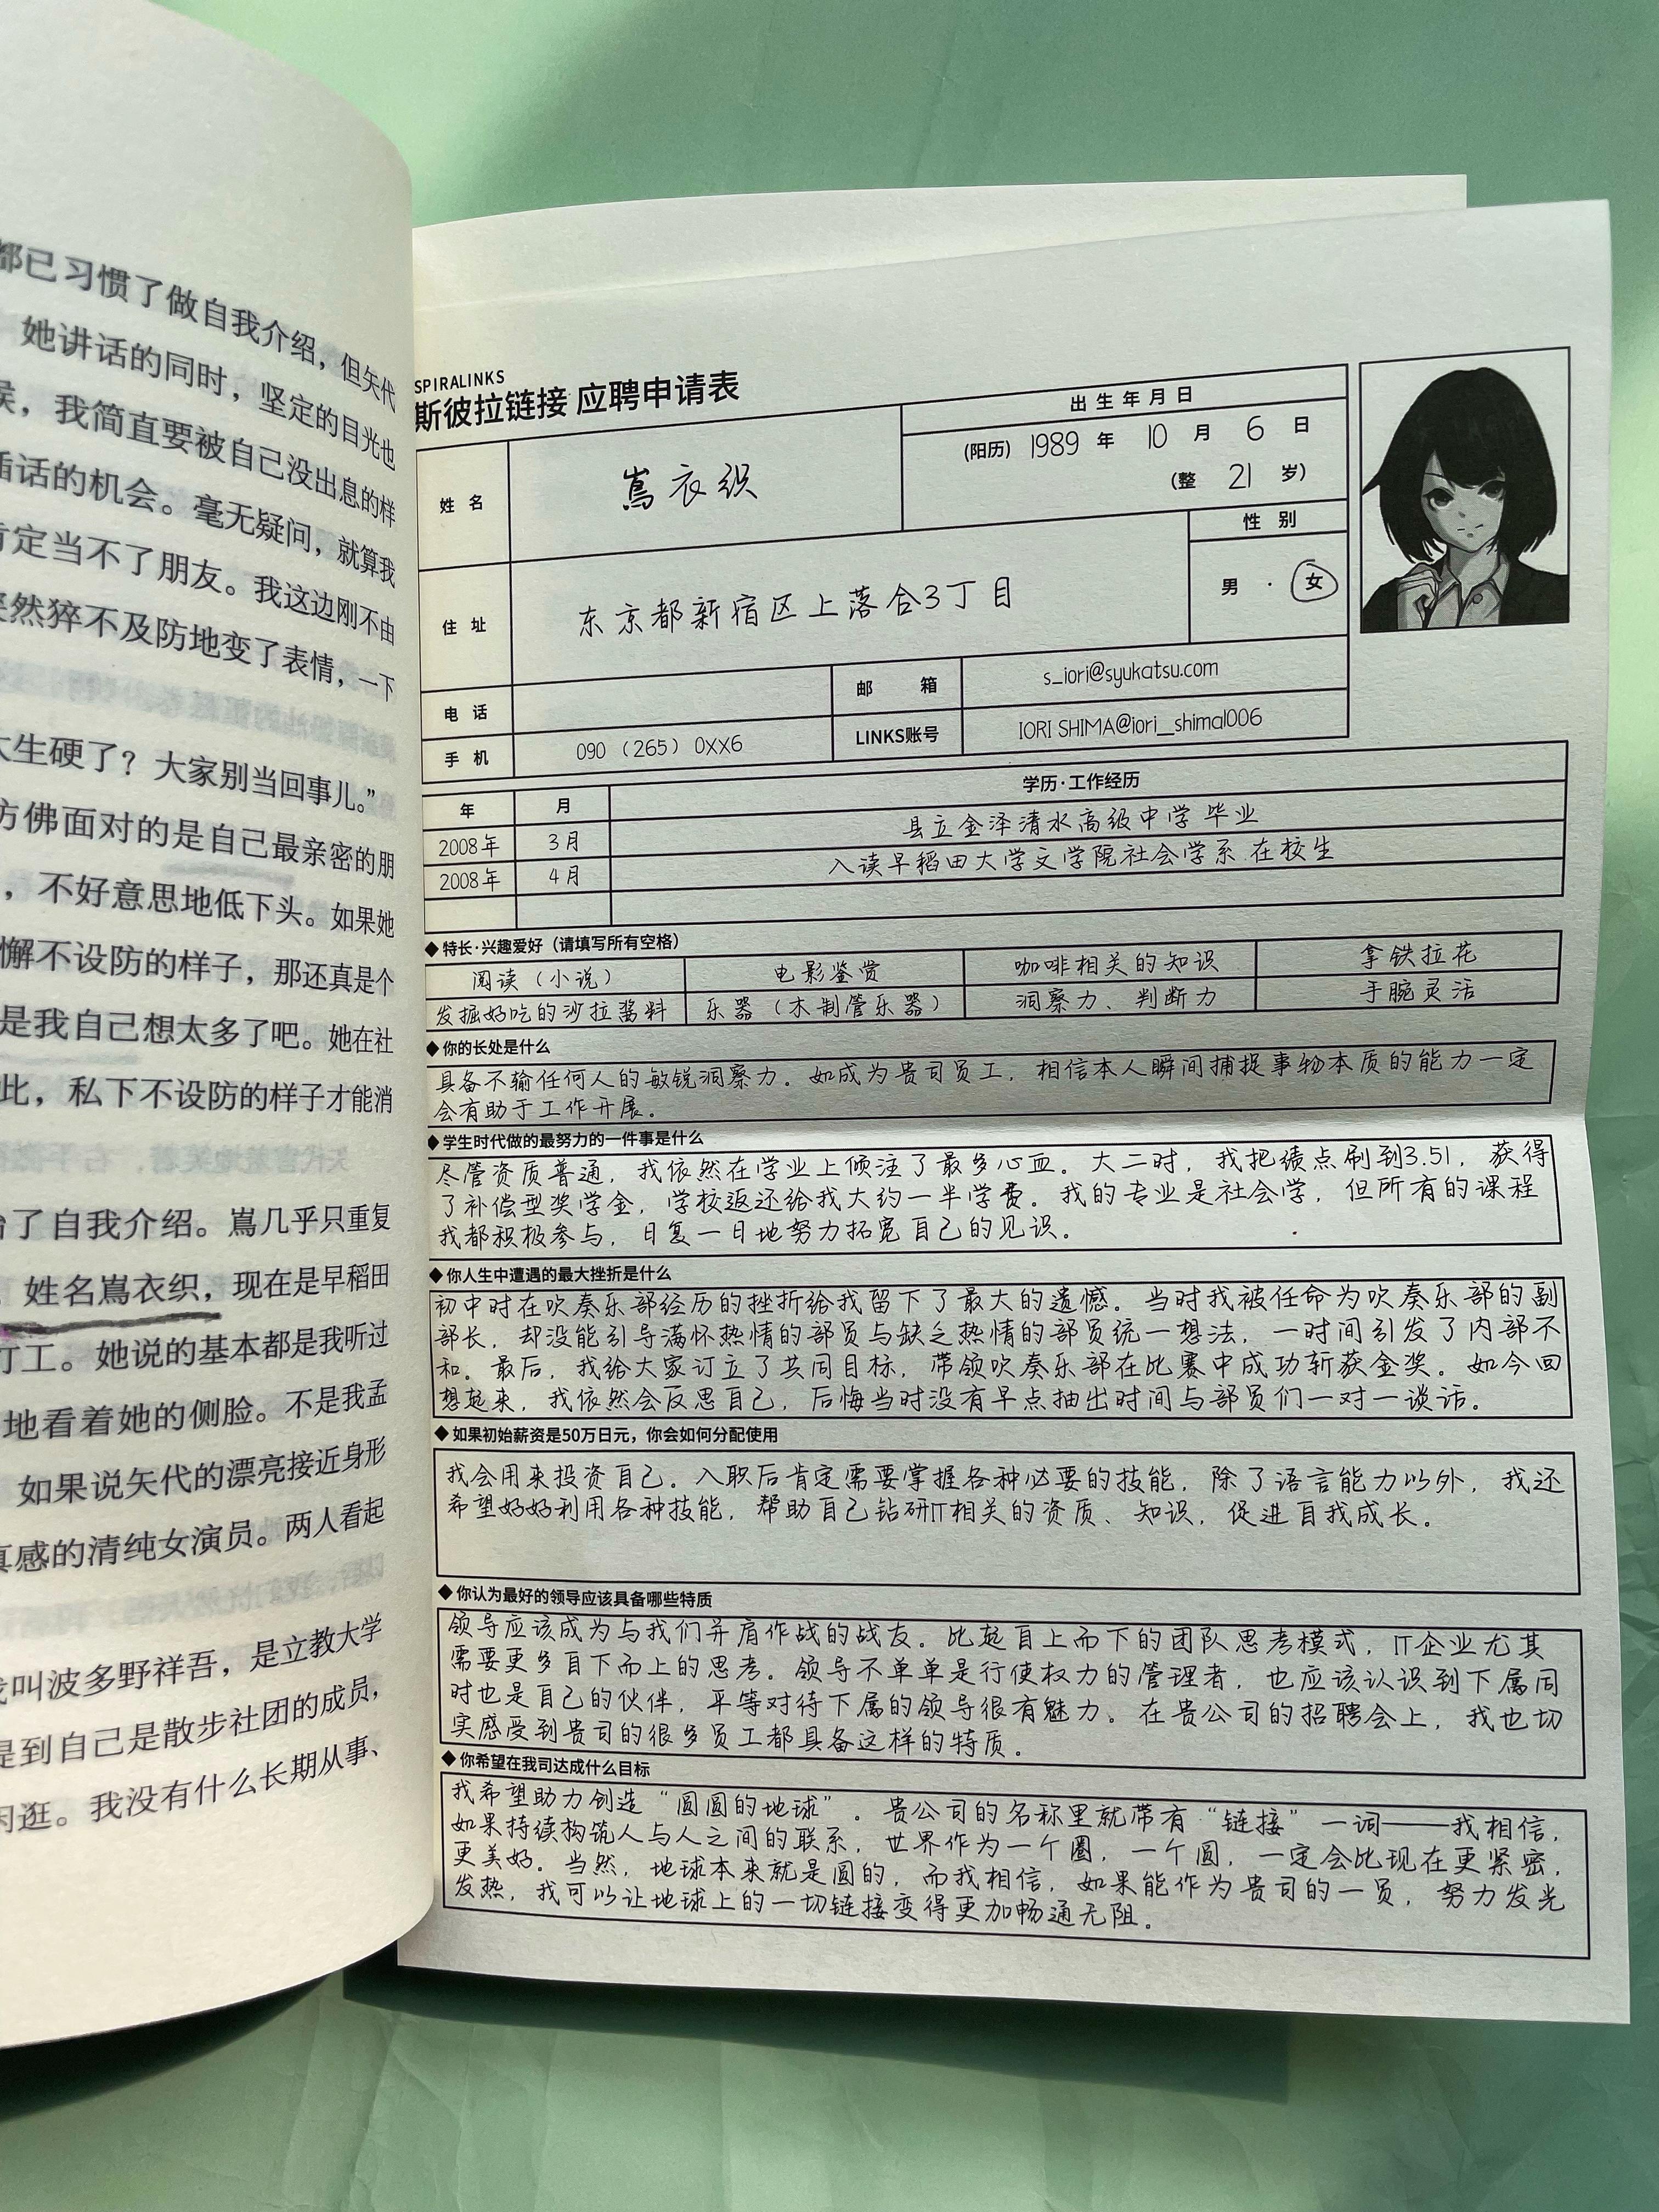 都已习惯了做自我介绍，但矢代
她讲话的同时，坚定的目光也
，我简直要被自己没出息的样
插话的机会。毫无疑问，就算我
肯定当不了朋友。我这边刚不由
突然猝不及防地变了表情，一下
太生硬了？大家别当回事儿。”
仿佛面对的是自己最亲密的朋
，不好意思地低下头。如果她
懈不设防的样子，那还真是个
是我自己想太多了吧。她在社
此，私下不设防的样子才能消
始了自我介绍。嶌几乎只重复
姓名嶌衣织，现在是早稻田
打工。她说的基本都是我听过
地看着她的侧脸。不是我孟
如果说矢代的漂亮接近身形
真感的清纯女演员。两人看起
我叫波多野祥吾，是立教大学
提到自己是散步社团的成员，
闲逛。我没有什么长期从事、
SPIRALINKS
斯彼拉链接 应聘申请表
姓 名
嶌衣织
出生年月日
(阳历) 1989 年 10 月 6 日
(整 21 岁)
住 址
东京都新宿区上落合3丁目
性 别
男 · 女
电 话
邮 箱
s_iori@syukatsu.com
手 机
090（265）0XX6
LINKS账号
IORI SHIMA@iori__shima1006
年 月 学历·工作经历
2008年 3月 县立金泽清水高级中学毕业
2008年 4月 入读早稻田大学文学院社会学系 在校生
◆特长·兴趣爱好（请填写所有空格）
阅读（小说） 电影鉴赏 咖啡相关的知识 拿铁拉花
发掘好吃的沙拉酱料 乐器（木制管乐器） 洞察力、判断力 手腕灵活
◆你的长处是什么
具备不输任何人的敏锐洞察力。如成为贵司员工，相信本人瞬间捕捉事物本质的能力一定
会有助于工作开展。
◆学生时代做的最努力的一件事是什么
尽管资质普通，我依然在学业上倾注了最多心血。大二时，我把绩点刷到3.51，获得
了补偿型奖学金，学校返还给我大约一半学费。我的专业是社会学，但所有的课程
我都积极参与，日复一日地努力拓宽自己的见识。
◆你人生中遭遇的最大挫折是什么
初中时在吹奏乐部经历的挫折给我留下了最大的遗憾。当时我被任命为吹奏乐部的副
部长，却没能引导满怀热情的部员与缺乏热情的部员统一想法，一时间引发了内部不
和。最后，我给大家订立了共同目标，带领吹奏乐部在比赛中成功斩获金奖。如今回
想起来，我依然会反思自己，后悔当时没有早点抽出时间与部员们一对一谈话。
◆如果初始薪资是50万日元，你会如何分配使用
我会用来投资自己。入职后肯定需要掌握各种必要的技能，除了语言能力以外，我还
希望好好利用各种技能，帮助自己钻研IT相关的资质、知识，促进自我成长。
◆你认为最好的领导应该具备哪些特质
领导应该成为与我们并肩作战的战友。比起自上而下的团队思考模式，IT企业尤其
需要更多自下而上的思考。领导不单单是行使权力的管理者，也应该认识到下属同
时也是自己的伙伴，平等对待下属的领导很有魅力。在贵公司的招聘会上，我也切
实感受到贵司的很多员工都具备这样的特质。
◆你希望在我司达成什么目标
我希望助力创造“圆圆的地球”。贵公司的名称里就带有“链接”一词——我相信，
如果持续构筑人与人之间的联系，世界作为一个圈，一个圆，一定会比现在更紧密，
更美好。当然，地球本来就是圆的，而我相信，如果能作为贵司的一员，努力发光
发热，我可以让地球上的一切链接变得更加畅通无阻。